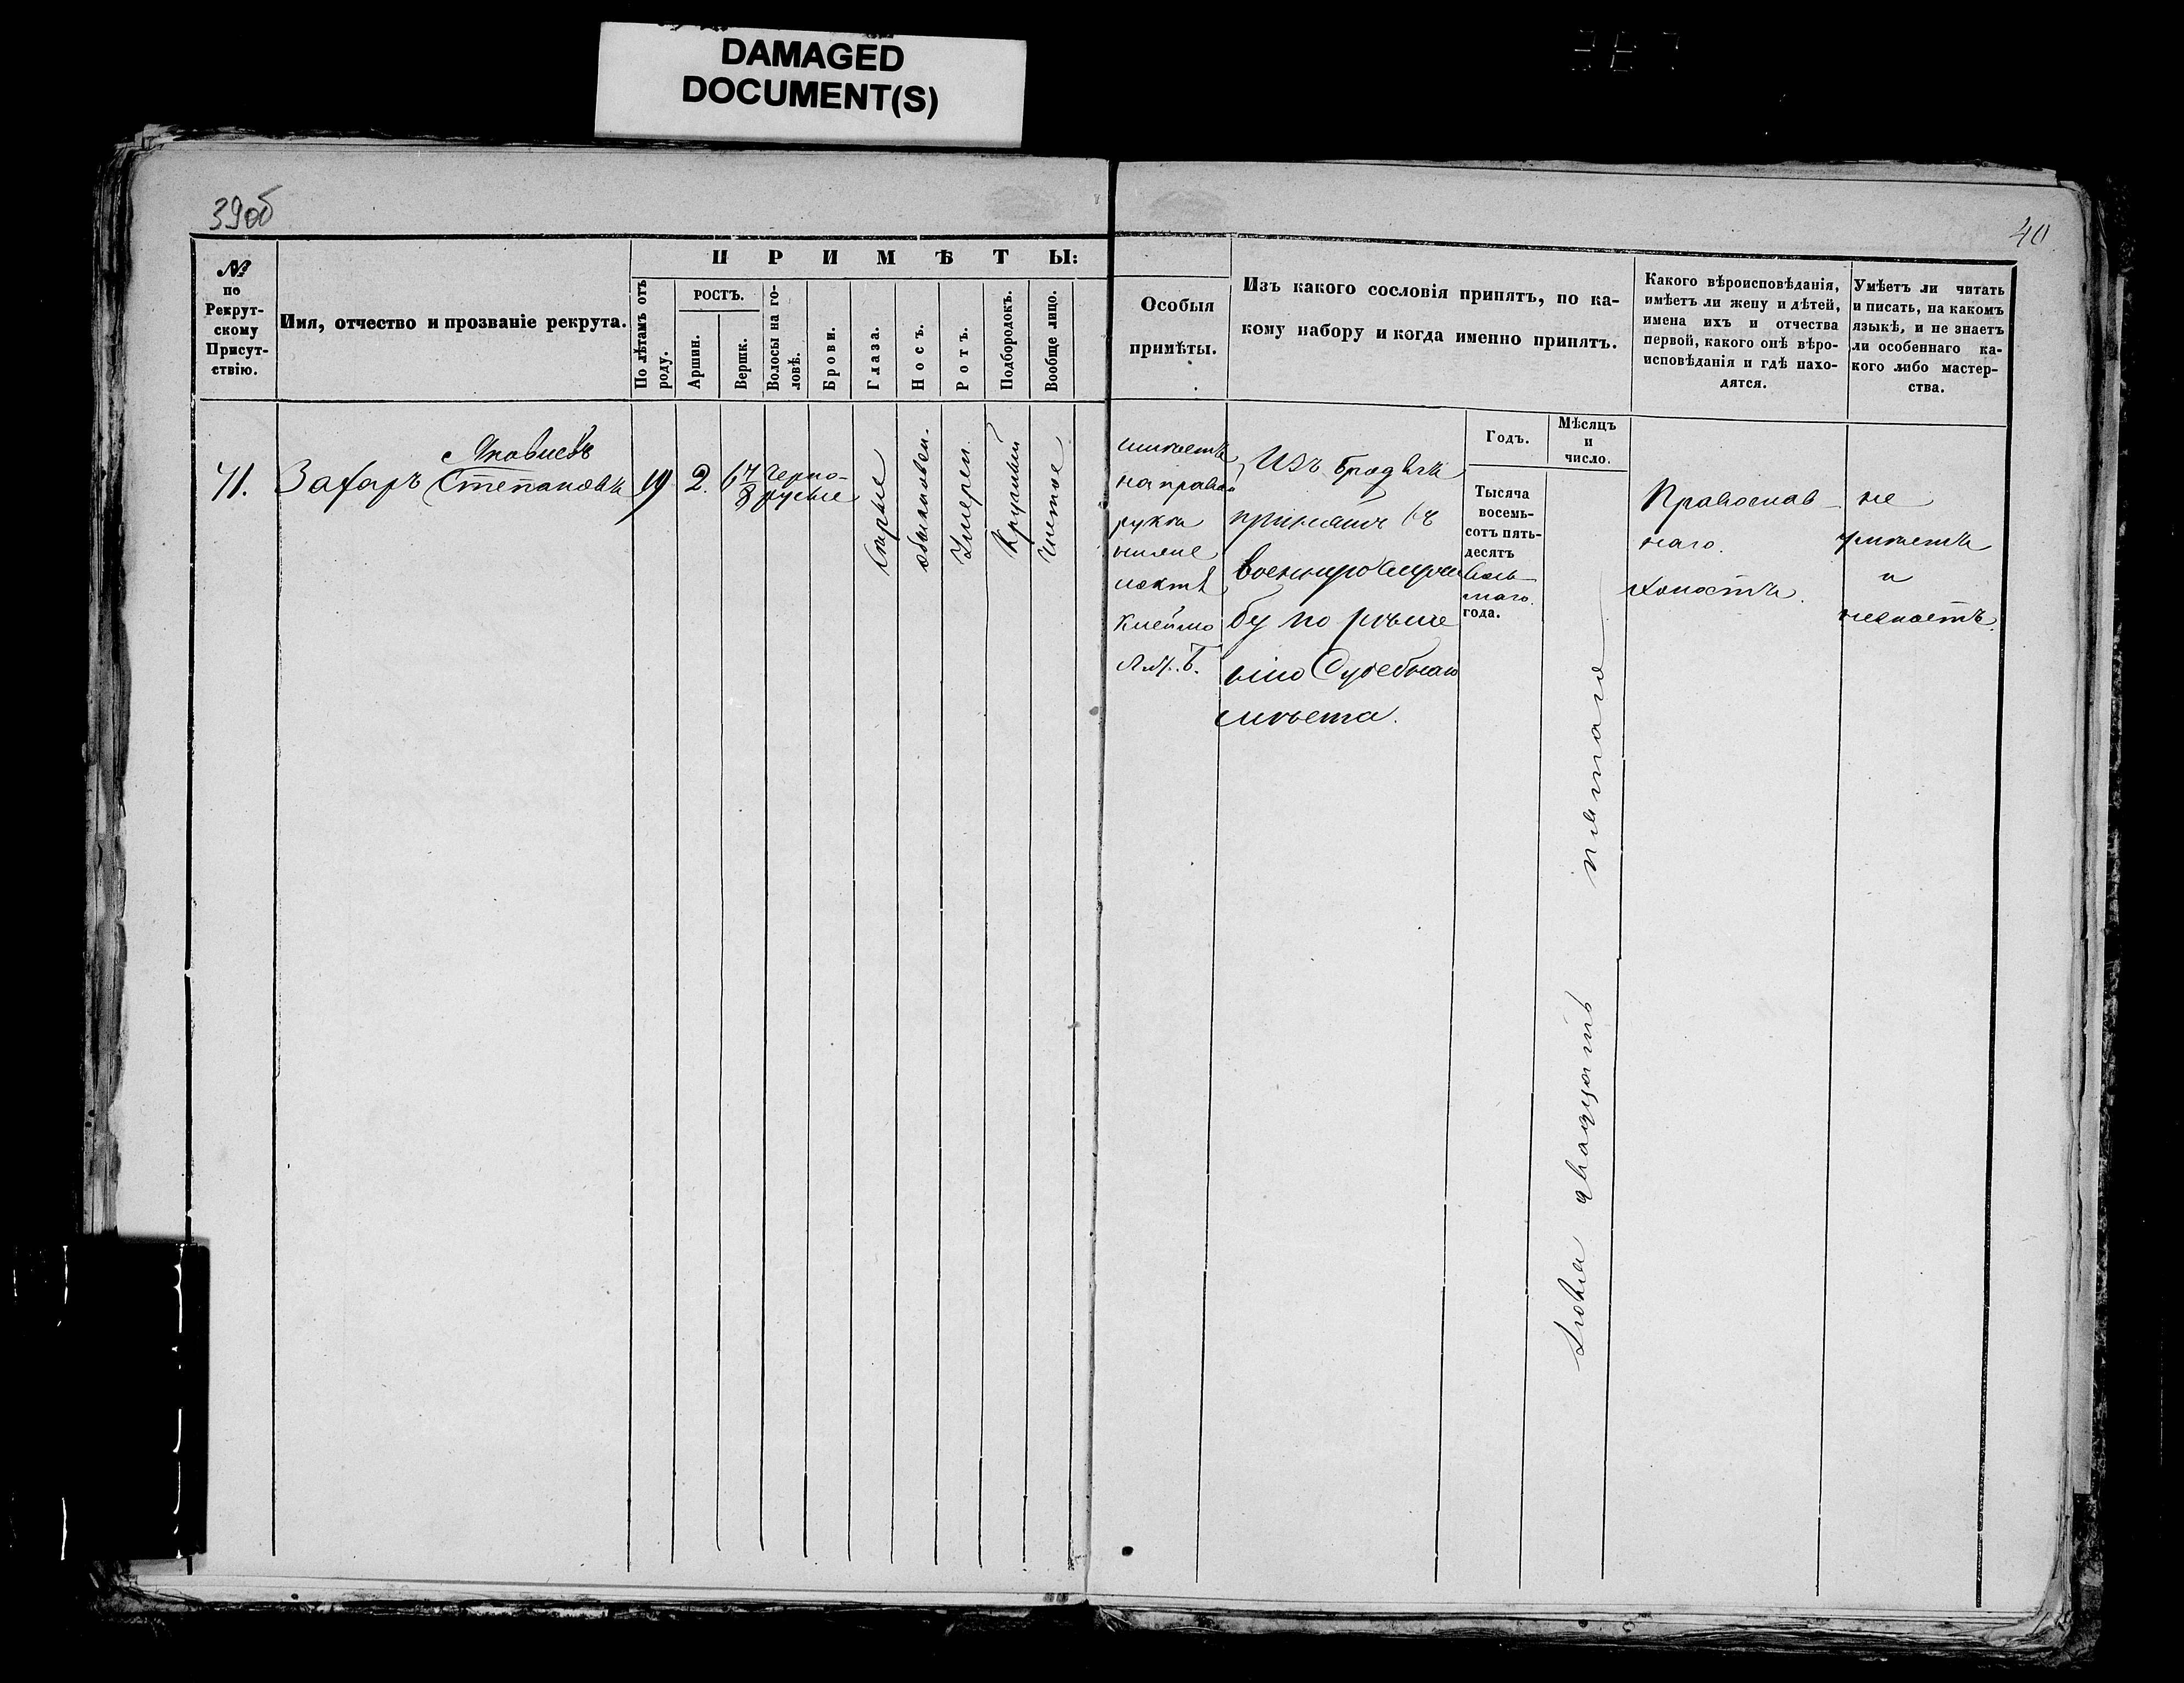 DAMAGED
DOCUMENT(S)
39об
40
№
по
Рекрут-
скому
Присут-
ствію.
Имя, отчество и прозваніе рекрута.
ПРИМѢТЫ:
По лѣтамъ отъ
роду.
РОСТЪ.
Аршин.
Вершк.
Волосы на го-
ловѣ.
Брови.
Глаза.
Носъ.
Ротъ.
Подбородокъ.
Вообще лицо.
Особыя
примѣты.
Изъ какого сословія принятъ, по ка-
кому набору и когда именно принятъ.
Какого вѣроисповѣданія,
имѣетъ ли жену и дѣтей,
имена ихъ и отчества
первой, какого онѣ вѣро-
исповѣданія и гдѣ нахо-
дятся.
Умѣетъ ли читать
и писать, на какомъ
языкѣ, и не знаетъ
ли особеннаго ка-
кого либо мастер-
ства.
Годъ.
Мѣсяцъ
и
число.
71.
Яковлевъ
Захаръ Степановъ
19
2.
6 7/8
черно-
русые
сѣрые
обыкновен.
умерен.
Круглый
чистое
имѣетъ
на правой
рукѣ
ниже
локтя
клеймо
Б.
Изъ бродягъ
принятъ въ
военную служ
бу по рѣше
нію Судебнаго
мѣста.
Тысяча
восемь-
сотъ пять-
десятъ
вось-
маго
года.
двадцать пятаго
Православ-
наго.
холостъ.
не
умѣетъ
и
незнаетъ.